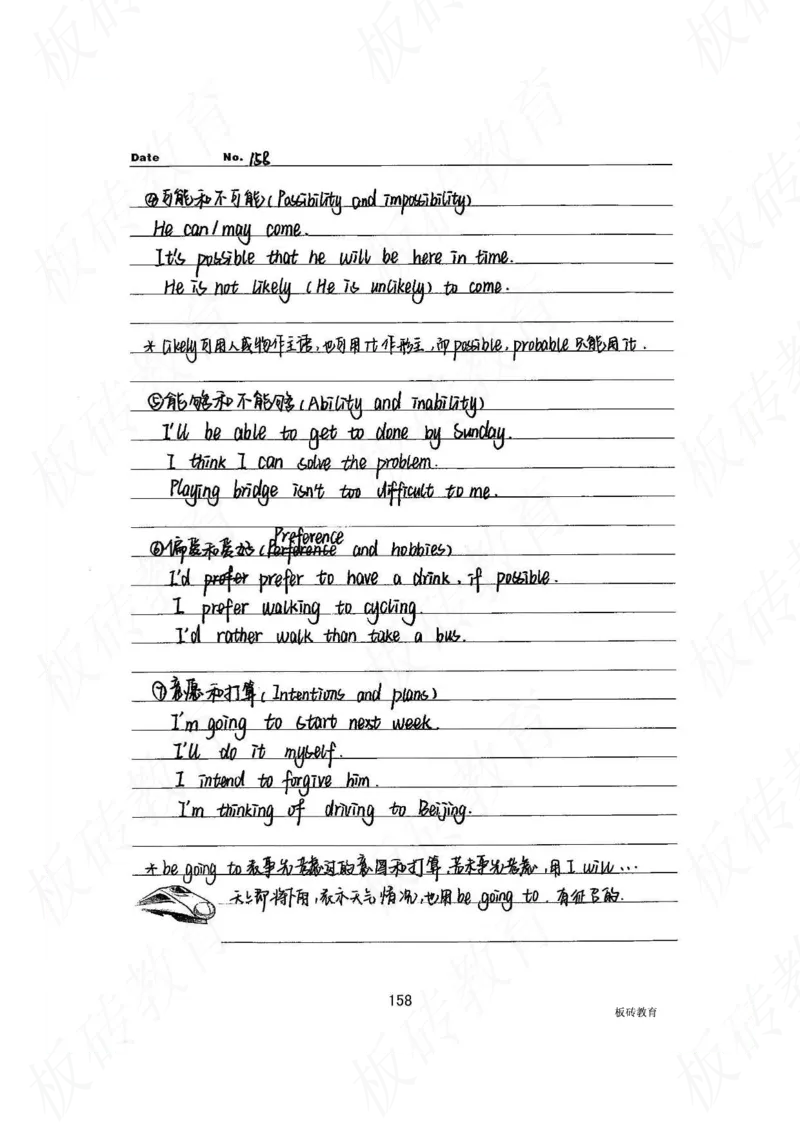 Date No. 158
④可能和不可能(Possibility and impossibility)
He can/may come.
It's possible that he will be here in time.
He is not likely (He is unlikely) to come.
* likely可用人或物作主语,也可用it作形主,而possible, probable只能用it.
⑤能够和不能够(Ability and inability)
I'll be able to get to done by Sunday.
I think I can solve the problem.
Playing bridge isn't too difficult to me.
Preference
⑥偏爱和爱好(Perference and hobbies)
I'd prefer prefer to have a drink, if possible.
I prefer walking to cycling.
I'd rather walk than take a bus.
⑦意愿和打算(Intentions and plans)
I'm going to start next week.
I'll do it myself.
I intend to forgive him.
I'm thinking of driving to Beijing.
* be going to表事先考虑过的意图和打算,若未事先考虑,用I will…
天上即将下雨,表示天气情况,也用be going to. 有征兆的.
158
板砖教育